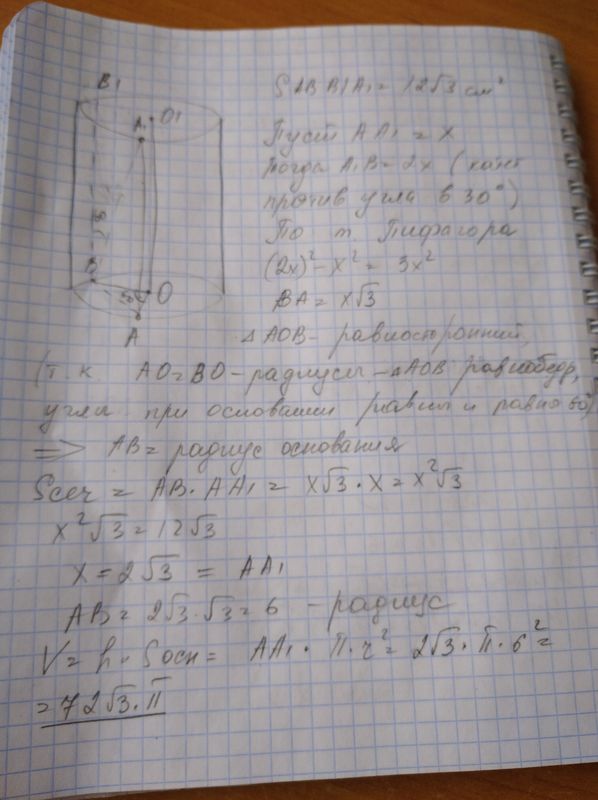 B1
O1
A1
B
O
A
S ABB1A1 = 12√3 см²
Пусть AA1 = x
тогда A1B = 2x (катет
против угла в 30°)
По т. Пифагора
(2x)² - x² = 3x²
BA = x√3
△ AOB - равносторонний,
(т. к. AO = BO - радиусы - △AOB равнобедр,
углы при основании равны и равно 60°)
=> AB = радиус основания
Sсеч = AB · AA1 = x√3 · x = x²√3
x²√3 = 12√3
x = 2√3 = AA1
AB = 2√3 · √3 = 6 - радиус
V = h · Sосн = AA1 · π · r² = 2√3 · π · 6² =
= 72√3 · π